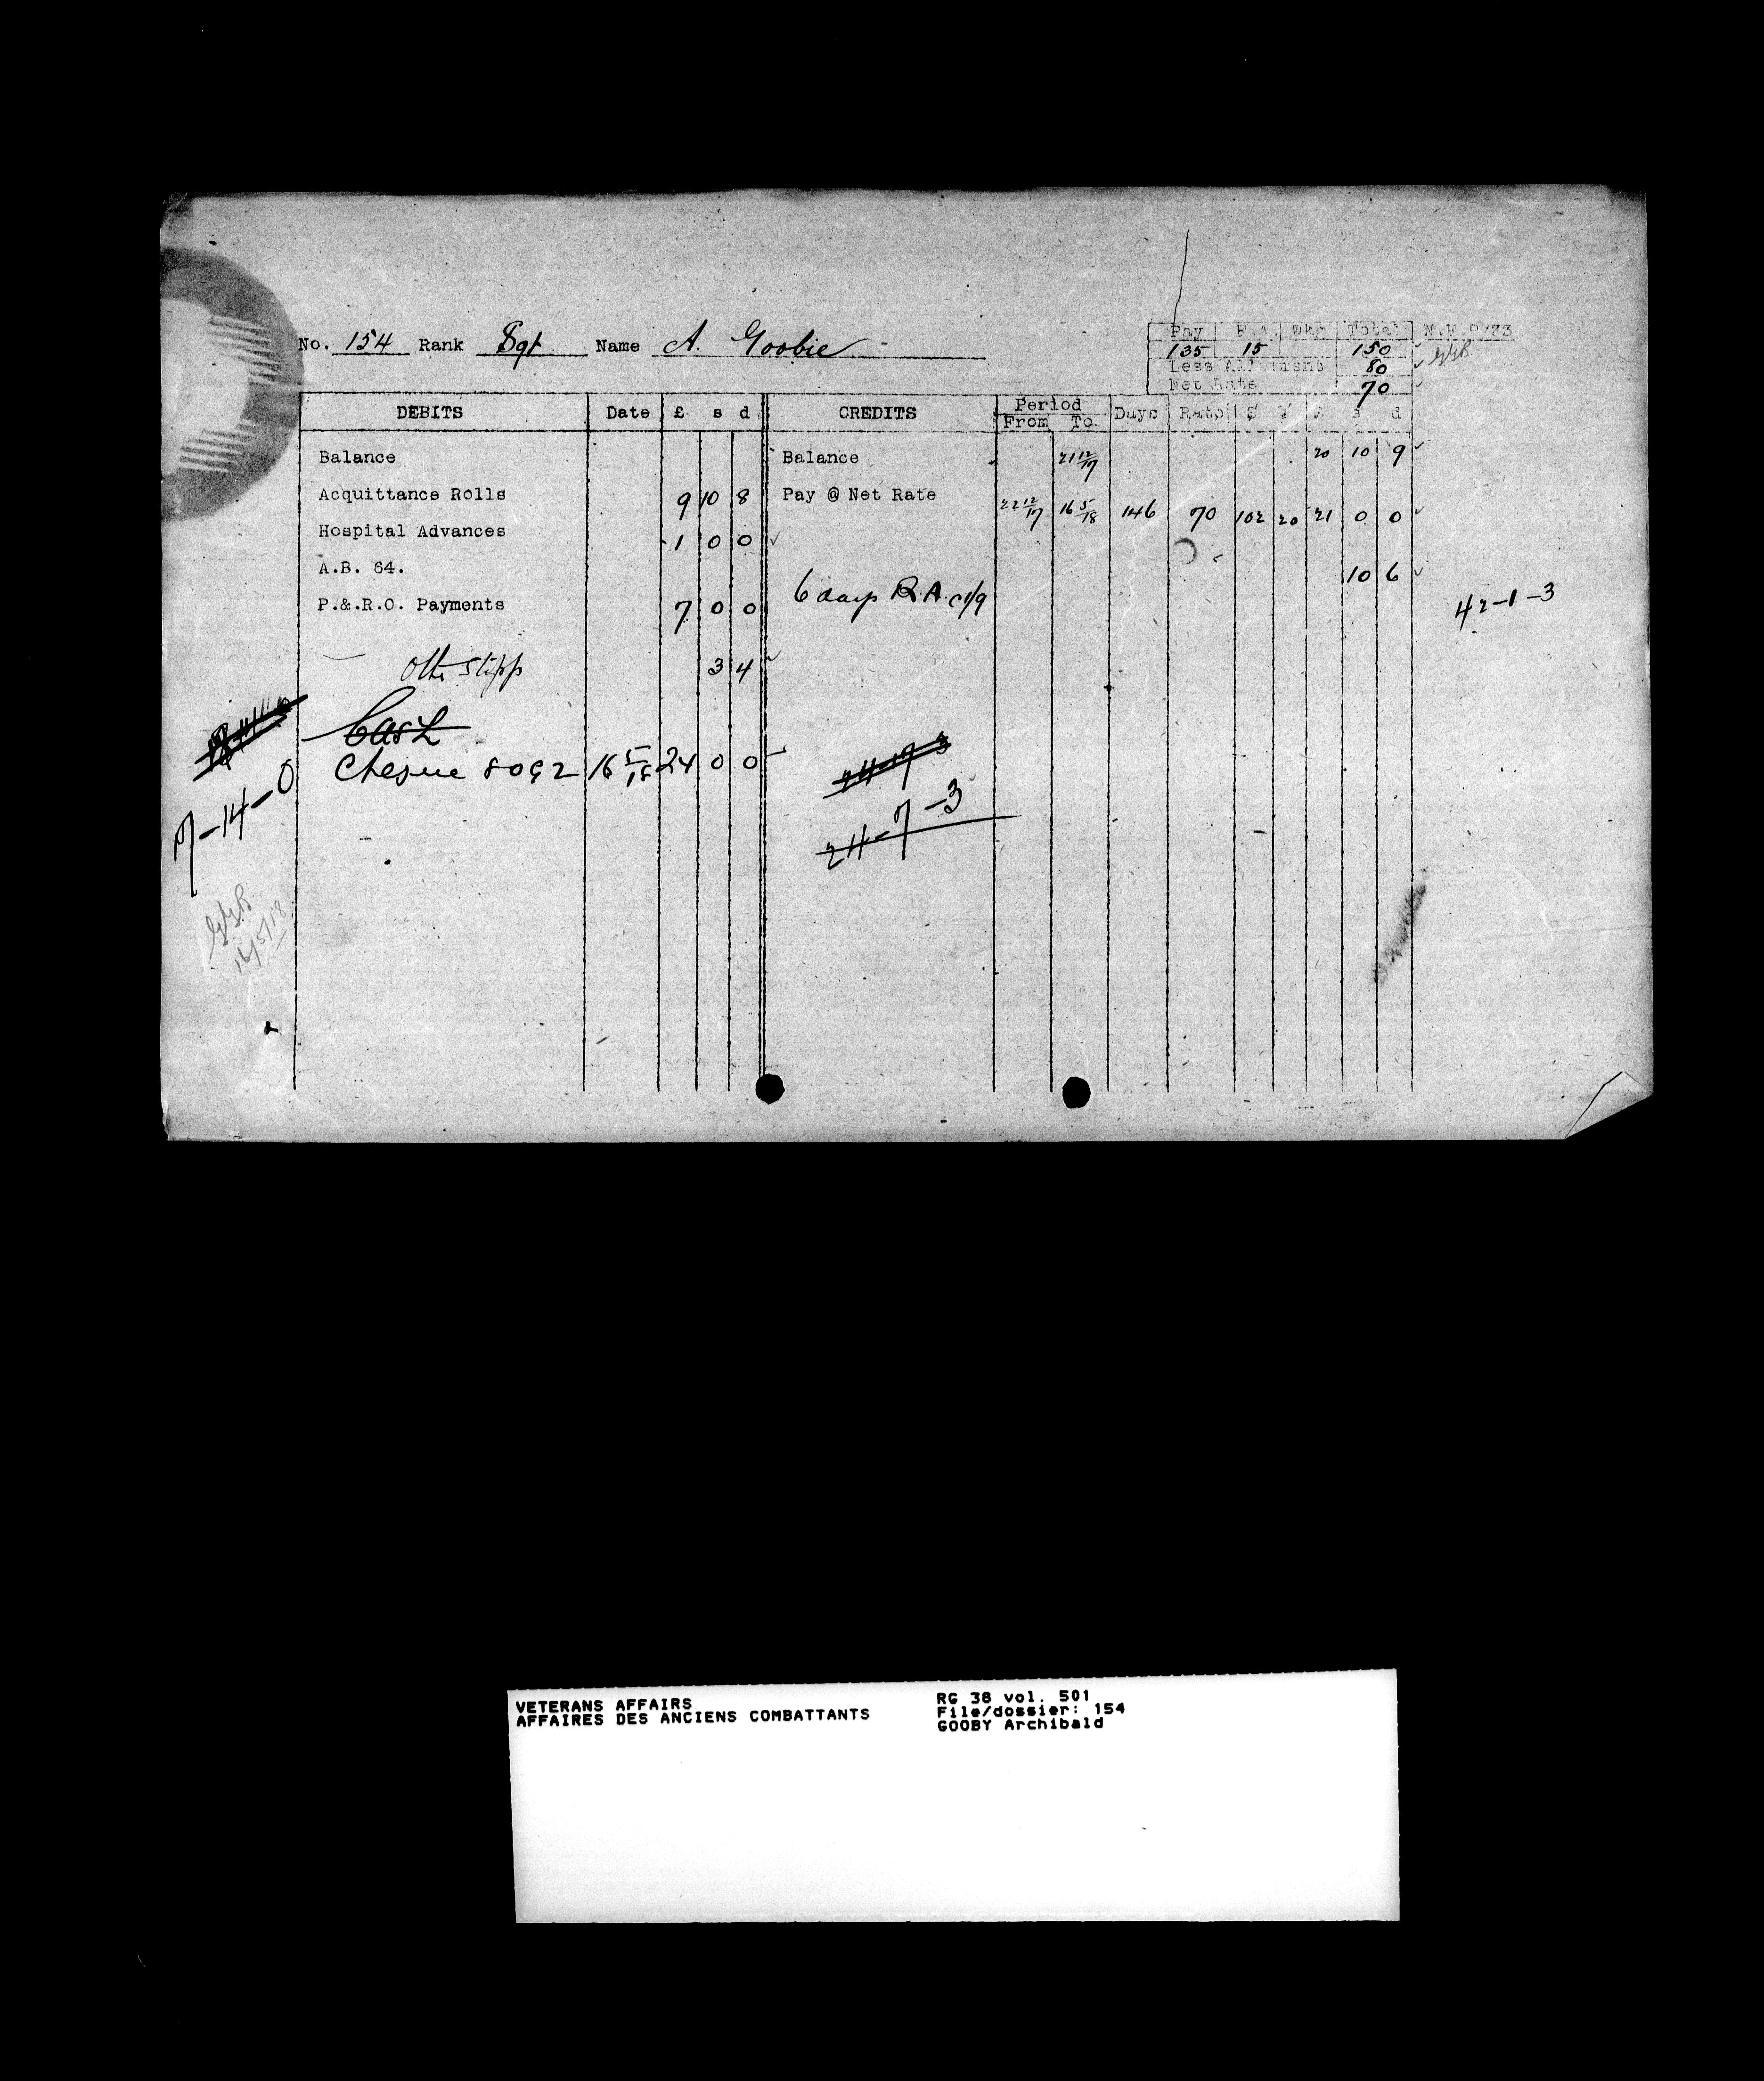 No. 154 Rank Sgt Name A. Goobie
Pay F.A. Wkg Total N.F.P/73
135 15 150
Less Allotment 80
Net Rate 70
DEBITS Date £ s d CREDITS Period From To Days Rate $ ¢ £ s d
Balance Balance 21 12/17 20 10 9
Acquittance Rolls 9 10 8 Pay @ Net Rate 22 12/17 16 5/18 146 70 102 20 21 0 0
Hospital Advances 1 0 0
A.B. 64. 10 6
P.&.R.O. Payments 7 0 0 6 days R.A. @ 1/9
42-1-3
3 4
Cash
Cheque 8092 16 5/18 24 0 0
24-19-3
17-14-0
24-7-3
16/5/18
VETERANS AFFAIRS
AFFAIRES DES ANCIENS COMBATTANTS
RG 38 vol. 501
File/dossier: 154
GOOBY Archibald